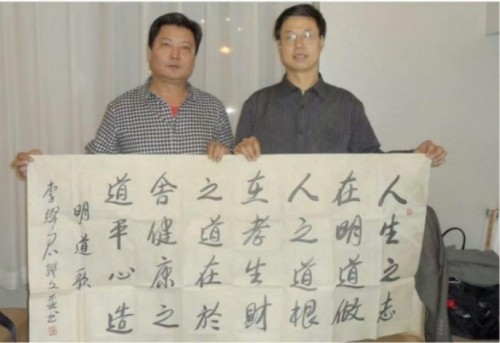 人生之志
在明道做
人之道根
在孝生財
之道在於
舍健康之
道平心造
明道歌
李